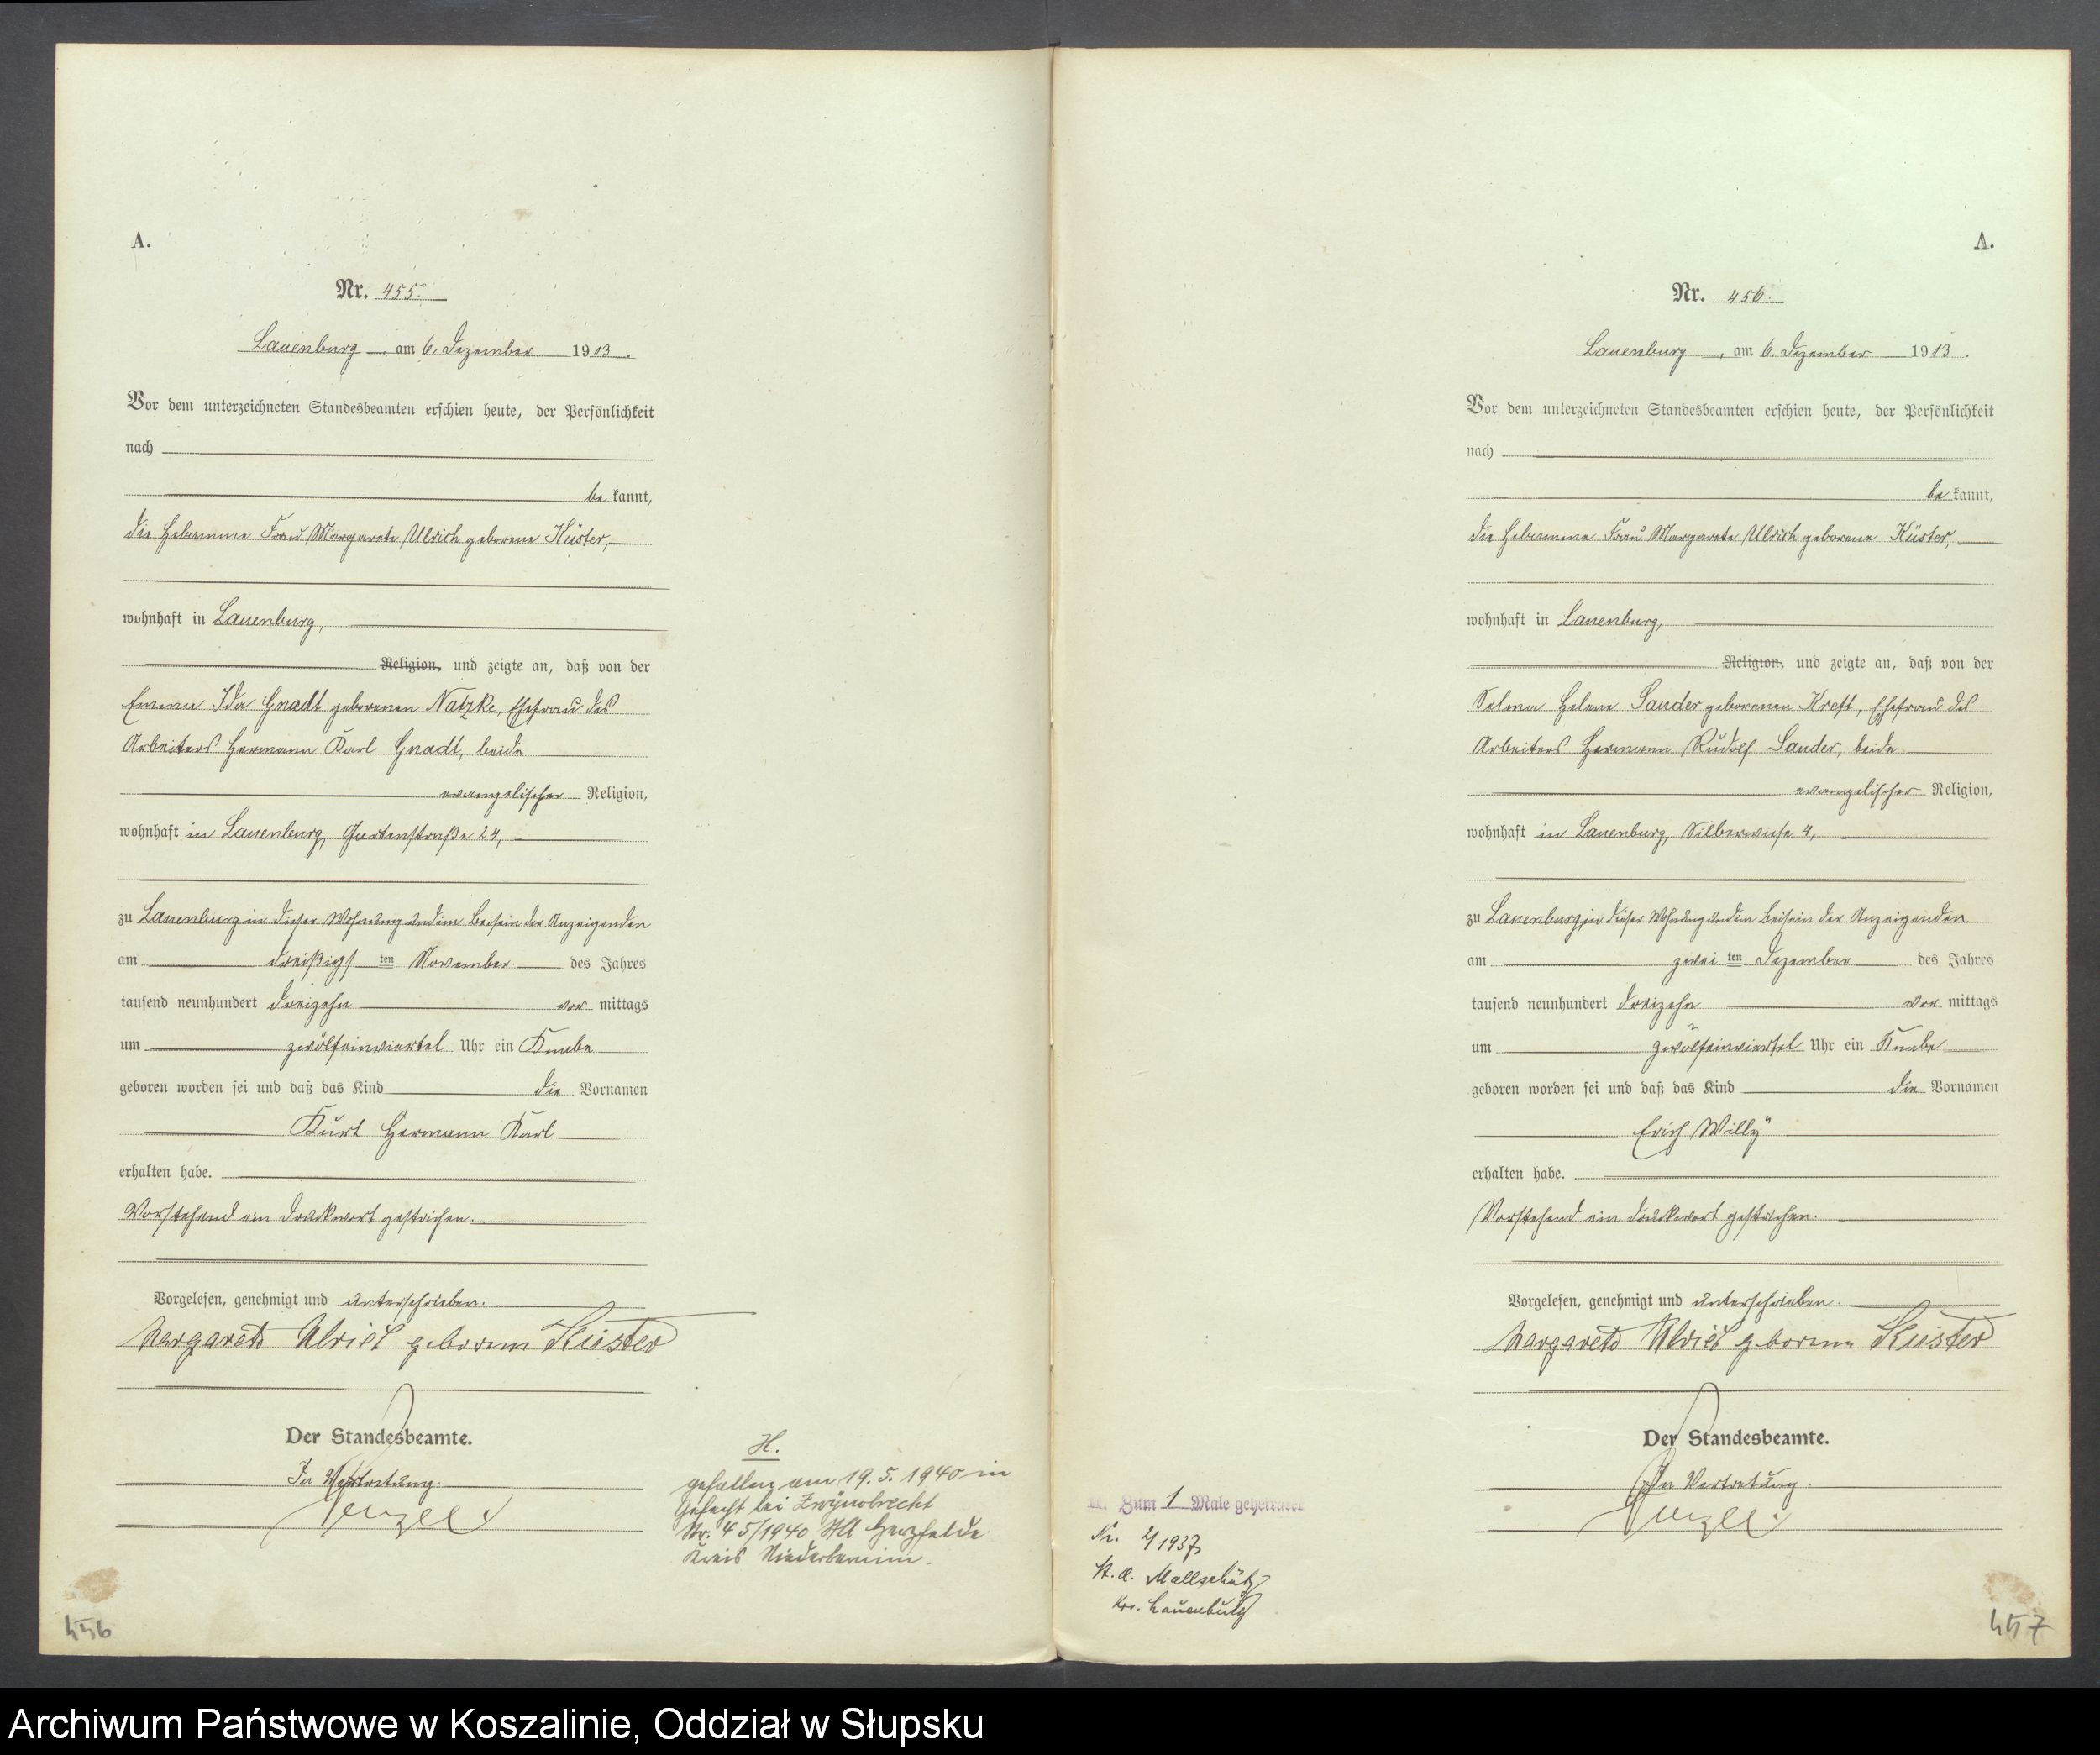 A.
Nr. 455.
Lauenburg, am 6. Dezember 1913.
Vor dem unterzeichneten Standesbeamten erschien heute, der Persönlichkeit
nach
be kannt,
die Hebamme Frau Margarete Ulrich geborene Küster,
wohnhaft in Lauenburg,
Religion, und zeigte an, daß von der
Emma Ida Gnadt geborenen Natzke, Ehefrau des
Arbeiters Hermann Karl Gnadt, beide
evangelischer Religion,
wohnhaft in Lauenburg, Gartenstraße 24,
zu Lauenburg in dieser Wohnung und im Beisein der Anzeigenden
am dreißigsten November des Jahres
tausend neunhundert dreizehn vor mittags
um zwölfeinviertel Uhr ein Knabe
geboren worden sei und daß das Kind die Vornamen
Kurt Hermann Karl
erhalten habe.
Vorstehend ein Druckwort gestrichen.
Vorgelesen, genehmigt und unterschrieben.
Margarete Ulrich geborene Küster
Der Standesbeamte.
In Vertretung.
H.
gefallen am 19.5.1940 in
Gefecht bei Zwijndrecht
Nr. 45/1940 StA Herzfelde
Kreis Niederbarnim.
456
A.
Nr. 456.
Lauenburg, am 6. Dezember 1913.
Vor dem unterzeichneten Standesbeamten erschien heute, der Persönlichkeit
nach
be kannt,
die Hebamme Frau Margarete Ulrich geborene Küster,
wohnhaft in Lauenburg,
Religion, und zeigte an, daß von der
Selma Helene Sander geborenen Kreft, Ehefrau des
Arbeiters Hermann Rudolf Sander, beide
evangelischer Religion,
wohnhaft in Lauenburg, Silberwiese 4,
zu Lauenburg, in dieser Wohnung und im Beisein der Anzeigenden
am zwei ten Dezember des Jahres
tausend neunhundert dreizehn vor mittags
um zwölfeinviertel Uhr ein Knabe
geboren worden sei und daß das Kind die Vornamen
Erich Willy
erhalten habe.
Vorstehend ein Druckwort gestrichen.
Vorgelesen, genehmigt und unterschrieben.
Margarete Ulrich geborene Küster
Der Standesbeamte.
In Vertretung.
Zum 1 Male geheiratet
Nr. 2/1937
St. A. Mallschütz
Krs. Lauenburg
457
Archiwum Państwowe w Koszalinie, Oddział w Słupsku